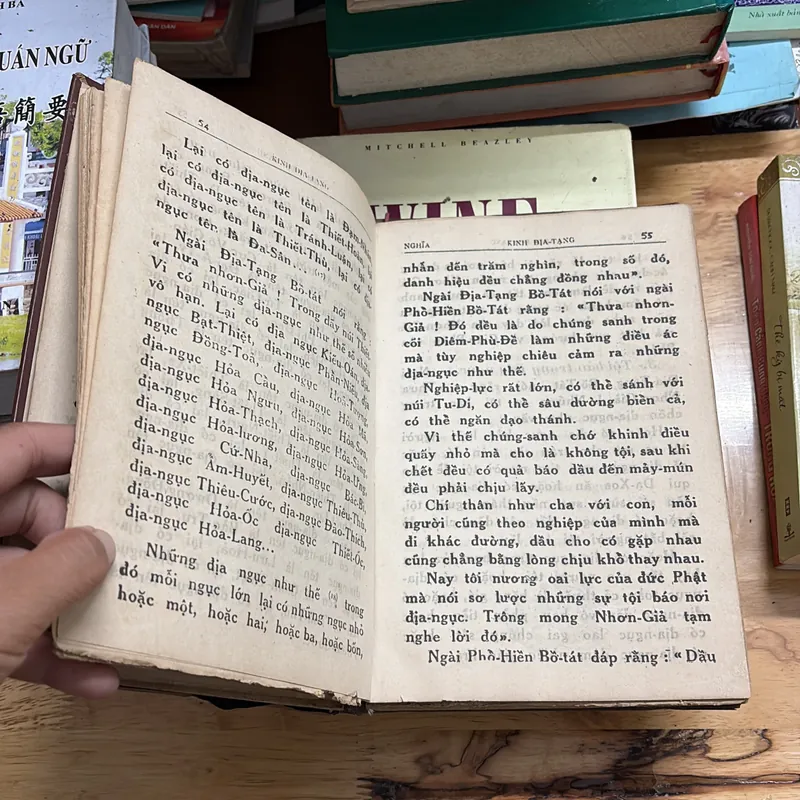 H BÁ
UÁN NGỮ
簡要
Nhà xuất bản
MITCHELL BEAZLEY
WINE
54
KINH ĐỊA-TẠNG
Lại có địa-ngục tên là
lại có địa-ngục tên là Thiết-Hoàn,
có địa-ngục tên là Tránh-Luận, lại có
địa-ngục tên là Thiết-Thù, lại có
ngục tên là Đa-Sân
Ngài Địa-Tạng Bồ-tát nói rằng
«Thưa nhơn-Giả ! Trong dãy núi Thiết
Vi có những địa-ngục như thế số nhiều
vô hạn. Lại có địa ngục Kiếu-Oán, địa
ngục Bạt-Thiệt, địa-ngục Phẩn-Niếu, địa
ngục Đồng-Toả, địa-ngục
địa-ngục Hỏa Cầu, địa-ngục Hỏa
địa-ngục Hỏa Ngưu, địa-ngục Hỏa-Sơn,
địa-ngục Hỏa-Thạch, địa-ngục Hỏa-Sàng,
địa-ngục Hỏa-lương, địa-ngục Hỏa-Ưng,
địa-ngục Cứ-Nha, địa-ngục Bác-Bì,
địa-ngục Ẩm-Huyết, địa-ngục Thiêu-Thủ,
địa-ngục Thiêu-Cước, địa-ngục Đảo-Thích,
địa-ngục Hỏa-Ốc địa-ngục Thiết-Ốc,
địa-ngục Hỏa-Lang...
Những địa ngục như thế trong
đó mỗi ngục lớn lại có những ngục nhỏ
hoặc một, hoặc hai, hoặc ba, hoặc bốn,
NGHĨA KINH ĐỊA-TẠNG 55
nhẫn đến trăm nghìn, trong số đó,
danh hiệu đều chẳng đồng nhau».
Ngài Địa-Tạng Bồ-Tát nói với ngài
Phổ-Hiền Bồ-Tát rằng : «Thưa nhơn-
Giả ! Đó đều là do chúng sanh trong
cõi Diêm-Phù-Đề làm những điều ác
mà tùy nghiệp chiêu cảm ra những
địa-ngục như thế.
Nghiệp-lực rất lớn, có thể sánh với
núi Tu-Di, có thể sâu dường biển cả,
có thể ngăn đạo thánh.
Vì thế chúng-sanh chớ khinh điều
quấy nhỏ mà cho là không tội, sau khi
chết đều có quả báo dầu đến mảy-mún
đều phải chịu lấy.
Chí thân như cha với con, mỗi
người cũng theo nghiệp của mình mà
đi khác đường, dầu cho có gặp nhau
cũng chẳng bằng lòng chịu khổ thay nhau.
Nay tôi nương oai lực của đức Phật
mà nói sơ lược những sự tội báo nơi
địa-ngục. Trông mong Nhơn-Giả tạm
nghe lời đó».
Ngài Phổ-Hiền Bồ-tát đáp rằng : « Dầu